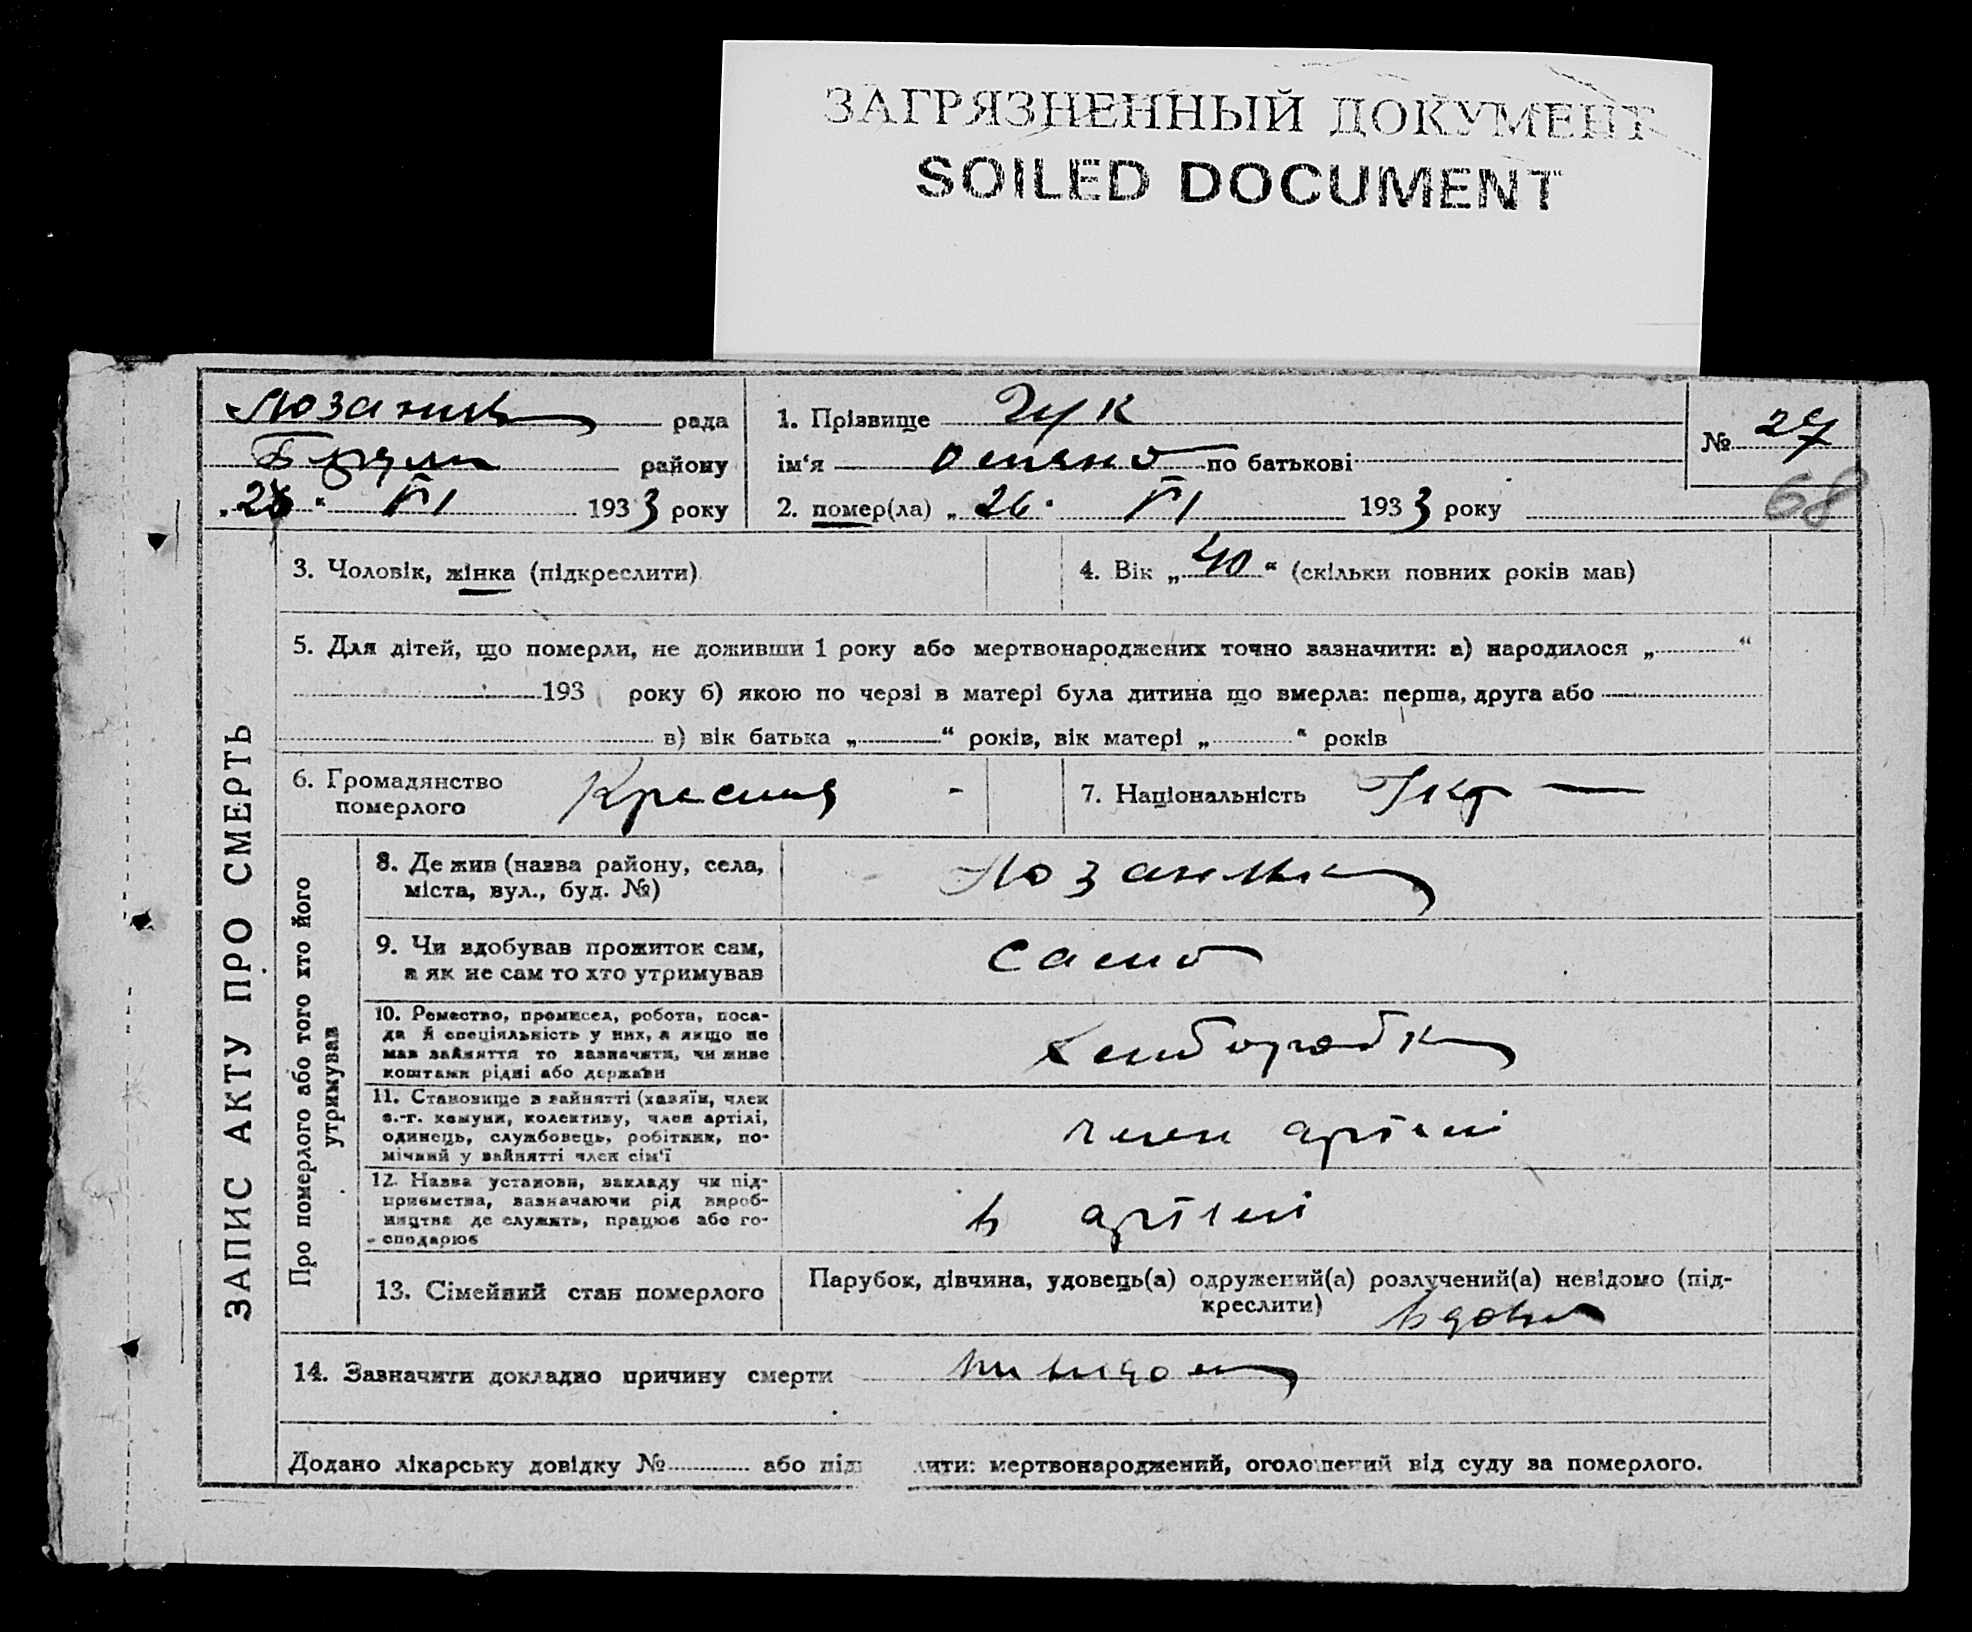 ЗАГРЯЗНЕННЫЙ ДОКУМЕНТ
SOILED DOCUMENT
рада
району
193 3 року
1. Прізвище
ім‘я по батькові
2. помер(ла) „ 26 “ VI 193 3 року
№ 27
68
ЗАПИС АКТУ ПРО СМЕРТЬ
3. Чоловік, жінка (підкреслити)
4. Вік „ 40 “ (скільки повних років мав)
5. Для дітей, що померли, не доживши 1 року або мертвонароджених точно зазначити: а) народилося „ “
193 року б) якою по черзі в матері була дитина що вмерла: перша, друга або
в) вік батька „ “ років, вік матері „ “ років
6. Громадянство
померлого
7. Національність Укр
Про померлого або того хто його
утримував
8. Де жив (назва району, села,
міста, вул., буд. №)
9. Чи здобував прожиток сам,
а як не сам то хто утримував
само
10. Ремество, промисел, робота, поса-
да й спеціяльність у них, а якщо не
мав зайняття то зазначити, чи живе
коштами рідні або держави
11. Становище в зайнятті (хазяїн, член
с.-г. комуни, колективу, член артілі,
одинець, службовець, робітник, по-
мічний у зайнятті член сім‘ї
член артілі
12. Назва установи, закладу чи під-
приємства, зазначаючи рід вироб-
ництва де служить, працює або го-
сподарює
в артілі
13. Сімейний стан померлого
Парубок, дівчина, удовець(а) одружений(а) розлучений(а) невідомо (під-
креслити) вдова
14. Зазначити докладно причину смерти
Додано лікарську довідку № або під лити: мертвонароджений, оголошений від суду за померлого.